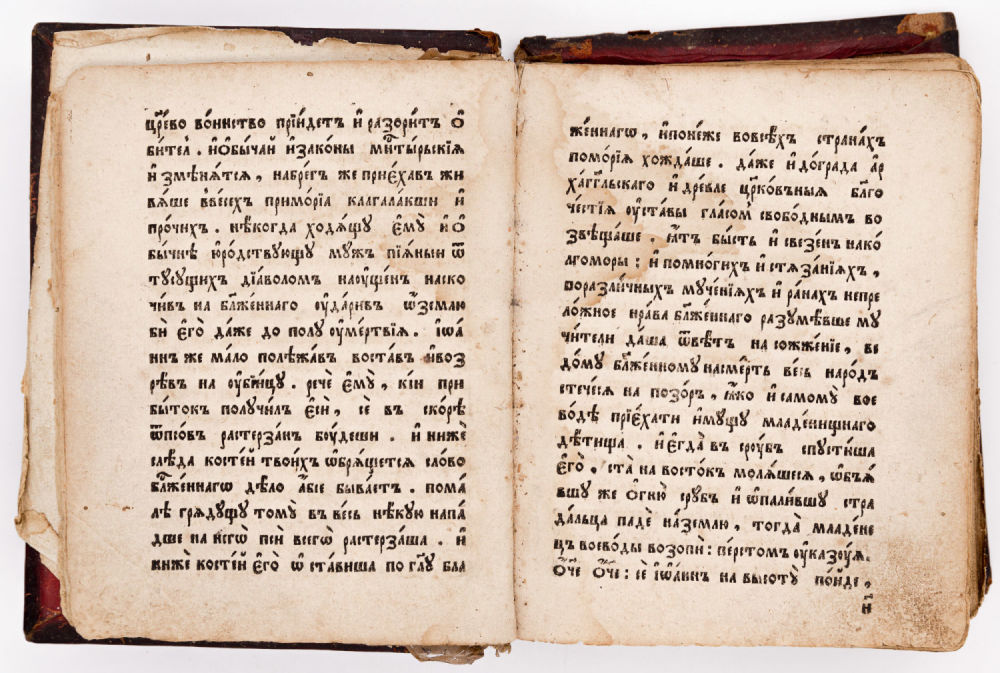 цр҃ево во́инство прїи́детъ и҆ разори́тъ ѻ҆
би́тел . и҆ѻбы́чаи и҆зако́ны мн҃тырьскїѧ
и҆ змѣнѧ́тсѧ , набрегъ же прие́хавъ жи
вѧ́ше в̾весехъ примо́рїа каагала́кши и҆
про́чихъ . нѣ́когда ходѧ́щу є҆му̀ и҆ ѻ҆
бы́чнѣ ю҆ро́дствующу мужъ пїѧ́ныи ѿ
ту́сущихъ дїа́волом наꙋщен наско
чи́въ на бл҃же́ннаго ᲂу҆да́ривъ ѡ҆́землю
би̂ є҆го̀ да́же до полу ᲂу҆ме́ртвїѧ . і҆ѡа́
ннъ же ма́ло поле́жавъ воста́въ и҆воз
рѣ́въ на ᲂу҆бі́йцу . рече̂ є҆му̀ , кі́и при
бы́токъ получи́лъ є҆сѝ , се̂ въ ско́рѣ
ѿпсо́въ растерза́нъ бо́удеши . и҆ нижѐ
слѣ́да косте́й твои́хъ ѡ҆брѧ́щетсѧ сло́во
бл҃же́ннагѡ дѣ́ло а҆́бїе быва́етъ . пома́
лѣ грѧду́щу тому̀ въ весь нѣ́кую напа́
дше на нєгѡ̀ пси̂ всегѡ̀ растерза́ша . и҆
ниже̂ косте́й є҆го̀ ѡ҆ ста́виша по гл҃у бла
же́ннагѡ , и҆поне́же вовсѣ́хъ страна́хъ
помо́рїѧ хожда́ше . да́же и҆ до́града а҆р
ха́гг҃льскаго и҆ дре́вле цр҃ко́въныѧ бл҃го
че́стїѧ ᲂу҆ста́вы гла́сом свобо́днымъ во
звѣща́ше . ꙗ҆́тъ бы́сть и҆ свезе́нъ нако́
лгоморы : и҆ помно́гихъ и҆ стѧза́нїѧхъ ,
поразли́чныхъ муче́нїѧхъ и҆ ра́нахъ непре
ло́жное нра́ва бл҃же́ннаго разумѣ́вше му
чи́тели да́ша ѿвѣ́тъ на сожже́нїе , ве
до́му бл҃же́нному насме́рть весь наро́дъ
стече́сѧ на позо́ръ , ꙗ҆́ко и҆ самому̀ вое
во́дѣ прїе́хати и҆му́щу младени́щнаго
дѣ́тища . и҆ є҆гда̀ въ сру́бъ спусти́ша
є҆го̀ , ста̀ на восто́къ молѧ́щесѧ , ѡ҆бъѧ́
вшу же ѻ҆гню̀ срубъ и҆ ѡ҆пали́вшу стра
да́льца паде̂ на́землю , тогда̀ младене
цъ воево́ды возопѝ : пе́рстом ᲂу҆каз꙼ꙋѧ .
ѻ҆́ч҃е ѻ҆́ч҃е : се̂ і҆ѡа́ннъ на высоту̀ по́йде ,
и҆